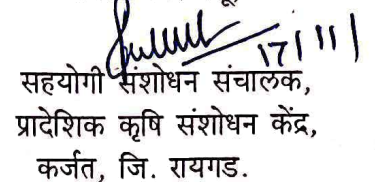 17/11/
सहयोगी संशोधन संचालक,
प्रादेशिक कृषि संशोधन केंद्र,
कर्जत, जि. रायगड.